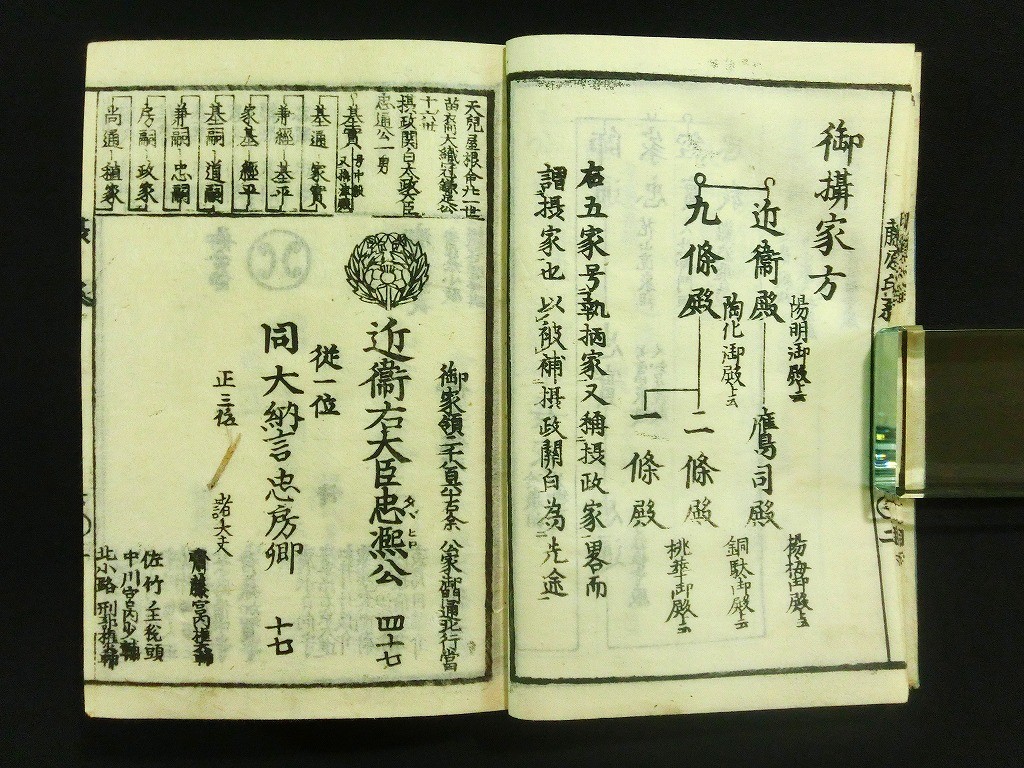 御摂家方
近衞殿
陽明御殿ト云
鷹司殿
楊梅御殿ト云
九條殿
陶化御殿ト云
二條殿
銅駄御殿ト云
一條殿
桃華御殿ト云
右五家号執柄家又稱摂政家畧而
謂摂家也以被補摂政關白為先途
天兒屋根命廿一世
苗裔大織冠鎌足公
十六世
摂政関白太政大臣
忠通公一男
基實
基通 家實
兼經 基平
家基 經平
基嗣 道嗣
兼嗣 忠嗣
房嗣 政家
尚通 植家
御家領二千八百六十石余
近衞右大臣忠凞公 四十七
タヾヒロ
從一位
同大納言忠房卿 十七
正三位
諸大夫
齋藤宮内権大輔
佐竹主税頭
中川宮内少輔
北小路刑部権大輔